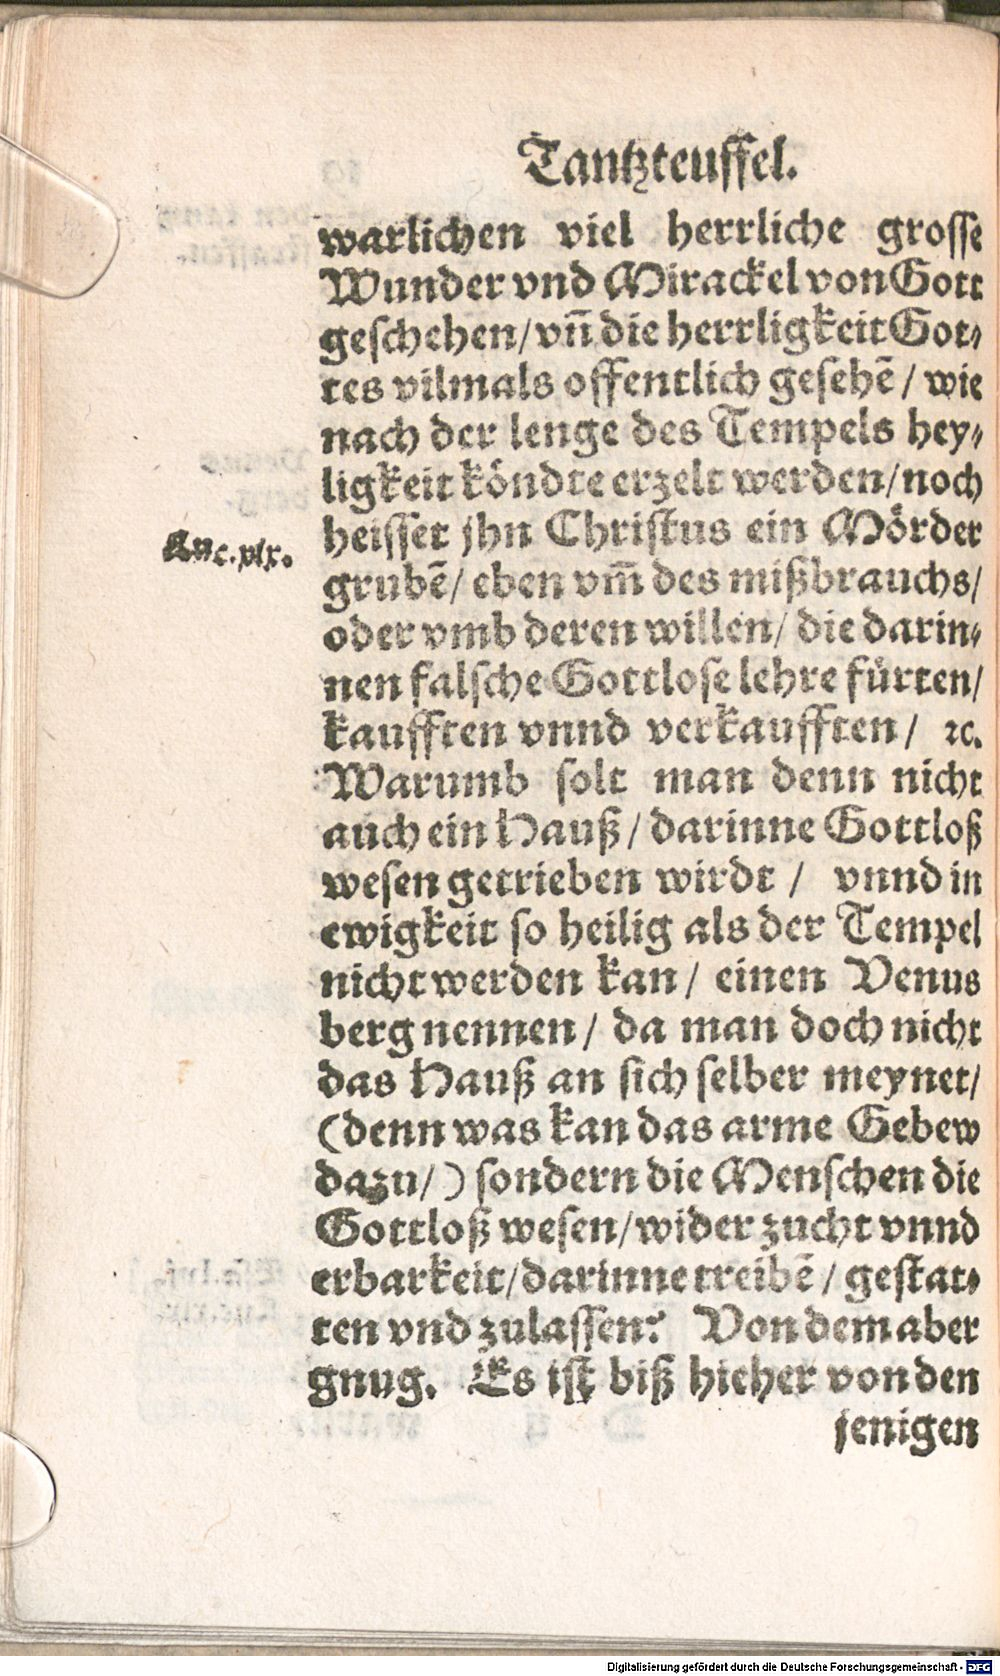 Tantzteuffel.
warlichen viel herrliche grosse
Wunder vnd Mirackel von Gott
geschehen / vñ die herrligkeit Got⸗
tes vilmals offentlich gesehẽ / wie
nach der lenge des Tempels hey⸗
ligkeit köndte erzelt werden / noch
heisset jhn Christus ein Mörder
Luc. xix.
grubẽ / eben vm̃ des mißbrauchs /
oder vmb deren willen / die darin⸗
nen falsche Gottlose lehre fürten /
kaufften vnnd verkaufften / ꝛc.
Warumb solt man denn nicht
auch ein Hauß / darinne Gottloß
wesen getrieben wirdt / vnnd in
ewigkeit so heilig als der Tempel
nicht werden kan / einen Venus
berg nennen / da man doch nicht
das Hauß an sich selber meynet /
(denn was kan das arme Gebew
dazu / ) sondern die Menschen die
Gottloß wesen / wider zucht vnnd
erbarkeit / darinne treibẽ / gestat⸗
ten vnd zulassen? Von dem aber
gnug. Es ist biß hieher von den
jenigen
Digitalisierung gefördert durch die Deutsche Forschungsgemeinschaft - DFG